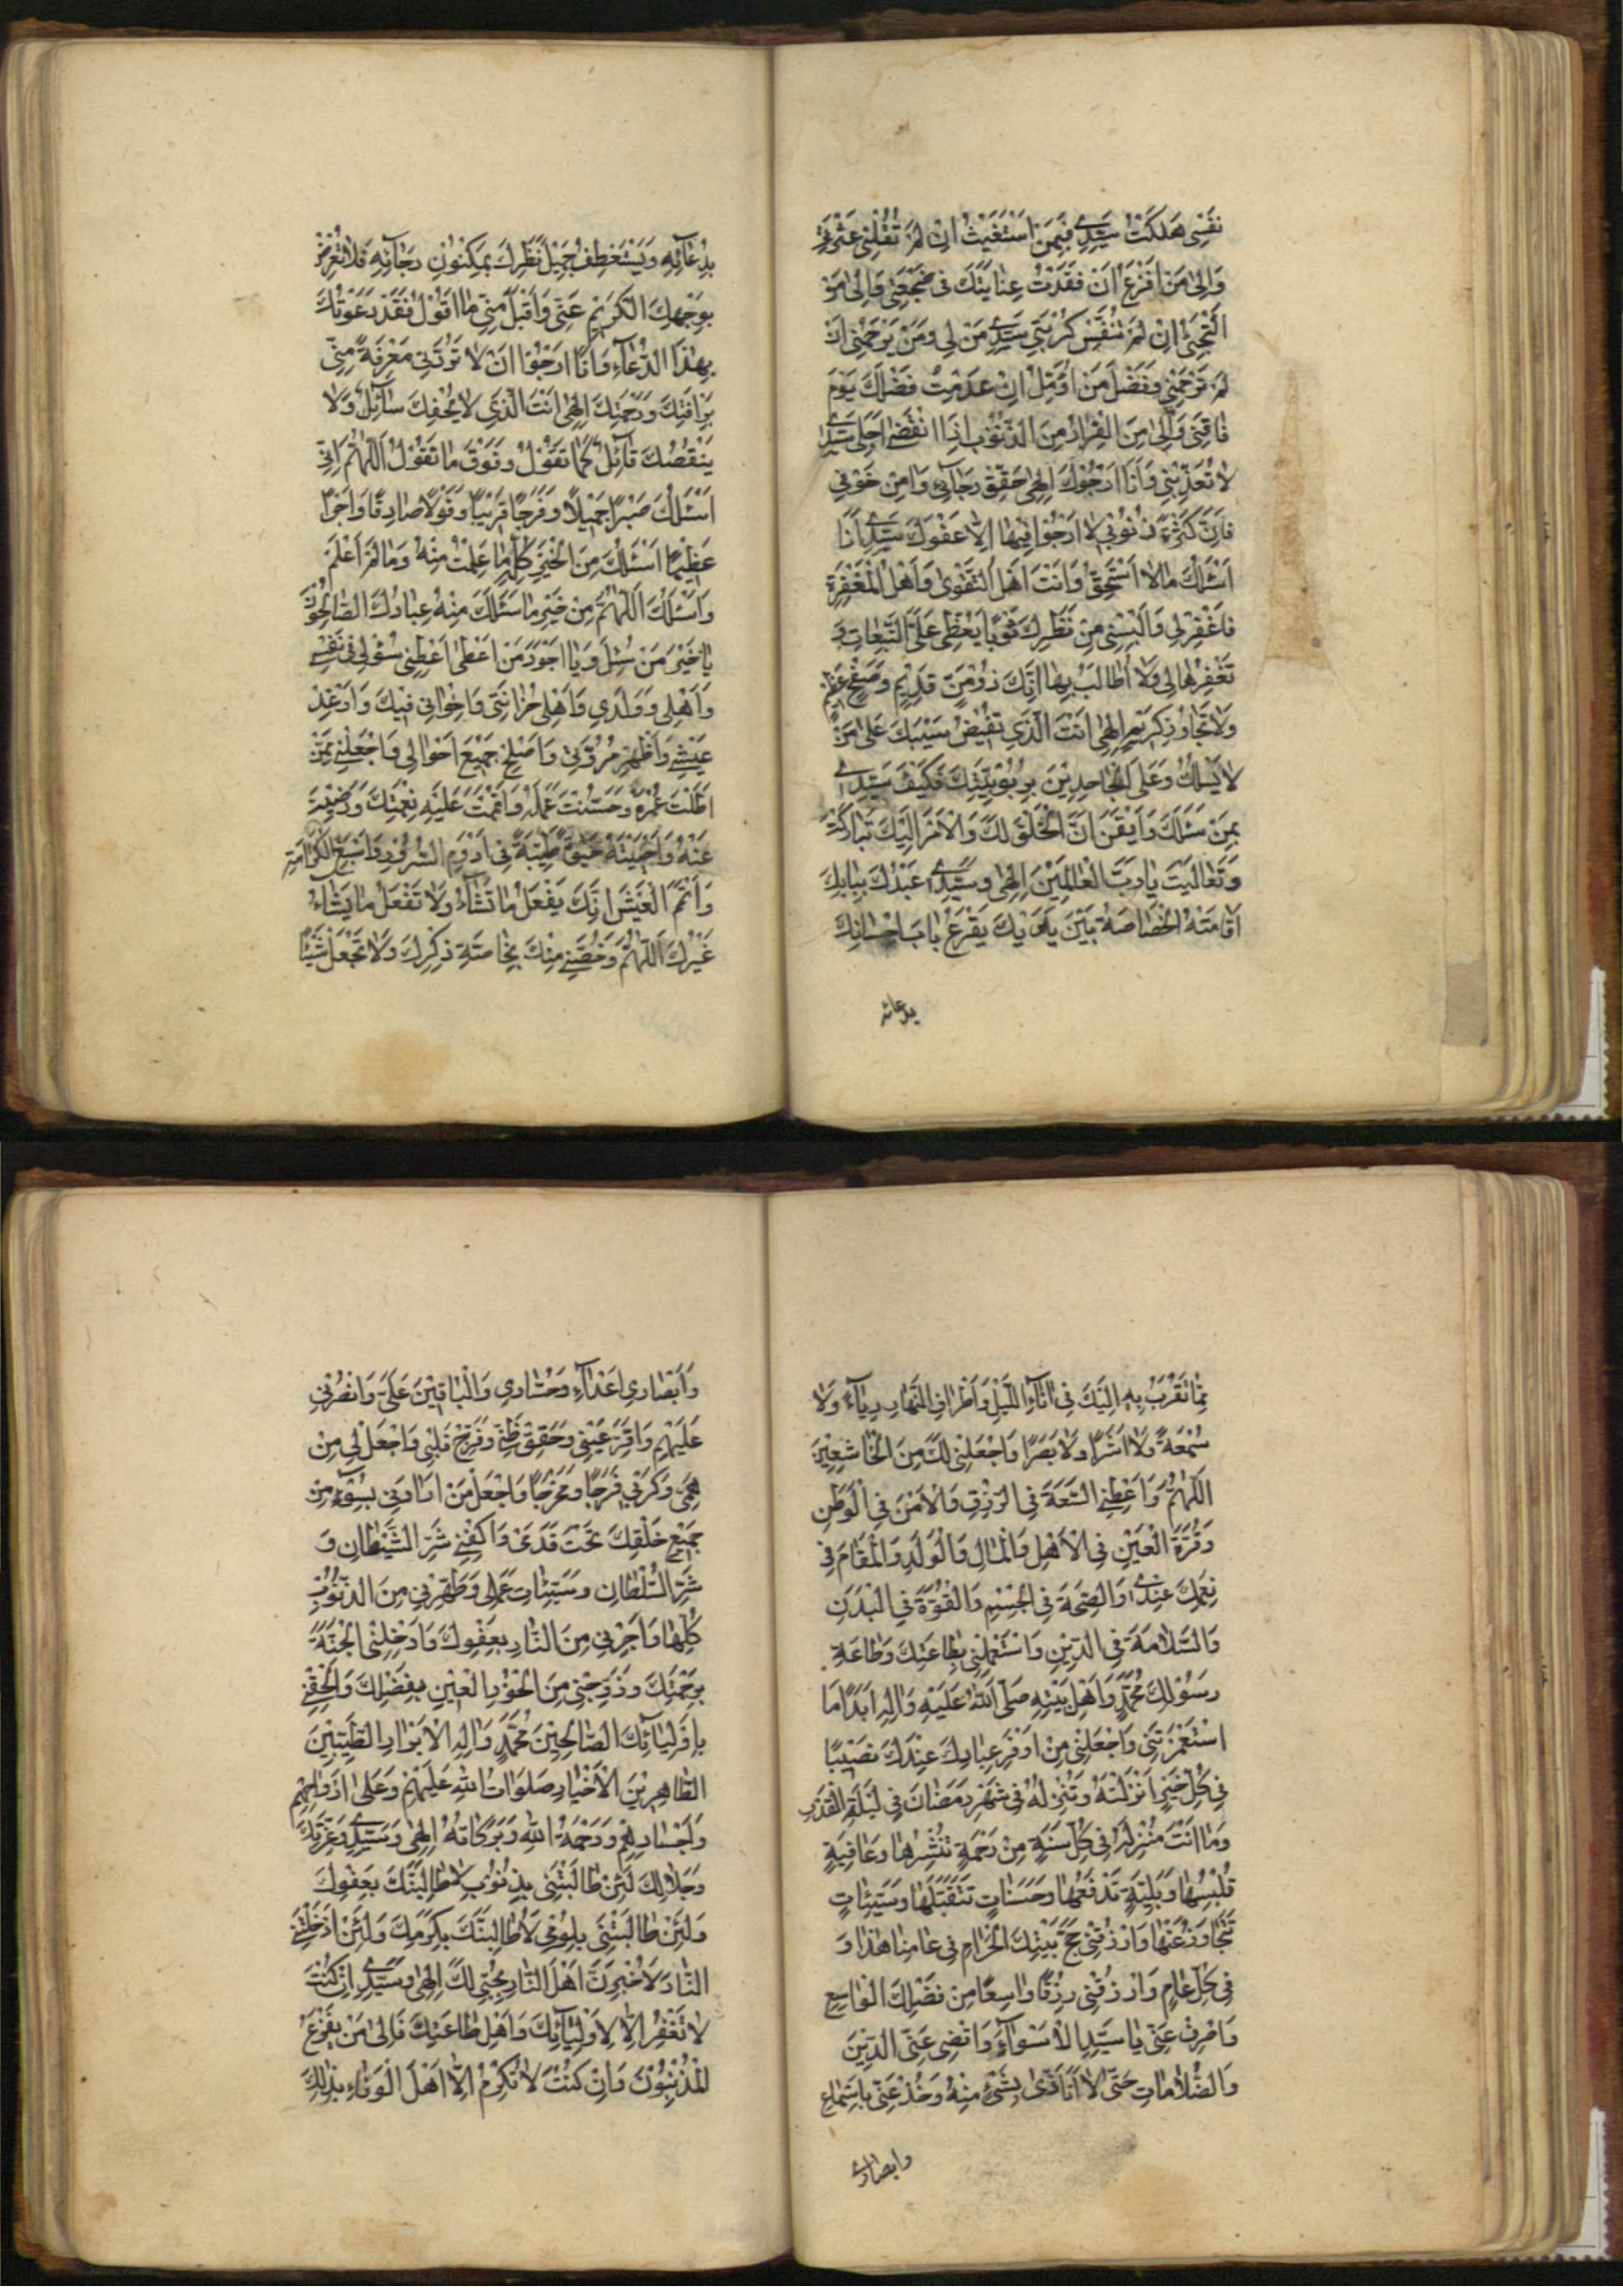 نَفْسِي هَلَكَتْ سَيِّدِي فَبِمَنْ اَسْتَغِيثُ اِنْ لَمْ تُقِلْنِي عَثْرَتِي
وَاِلىٰ مَنْ اَفْزَعُ اَنْ فَقَدْتُ عِنَايَتَكَ فِى ضَجْعَتِي وَاِلىٰ مَنْ
اَلْتَجِئُ اِنْ لَمْ تُنَفِّسْ كُرْبَتِي سَيِّدِي مَنْ لِي وَمَنْ يَرْحَمُنِي اَنْ
لَمْ تَرْحَمْنِي وَفَضْلَ مَنْ اُؤَمِّلُ اِنْ عَدِمْتُ فَضْلَكَ يَوْمَ
فَاقَتِي وَاِلىٰ مِنَ الْفِرَارُ مِنَ الذُّنُوبِ اِذَا انْقَضٰى اَجَلِي سَيِّدِي
لَا تُعَذِّبْنِي وَاَنَا اَرْجُوكَ اِلٰهِي حَقِّقْ رَجَائِي وَاٰمِنْ خَوْفِي
فَاِنَّ كَثْرَةَ ذُنُوبِي لَا اَرْجُوا فِيهَا اِلَّا عَفْوَكَ سَيِّدِي اَنَا
اَسْئَلُكَ مَا لَا اَسْتَحِقُّ وَاَنْتَ اَهْلُ التَّقْوىٰ وَاَهْلُ الْمَغْفِرَةِ
فَاغْفِرْ لِي وَاَلْبِسْنِي مِنْ نَظَرِكَ ثَوْبًا يُغَطِّي عَلَيَّ التَّبِعَاتِ وَ
تَغْفِرُهَا لِي وَلَا اُطَالَبُ بِهَا اِنَّكَ ذُو مَنٍّ قَدِيمٍ وَصَفْحٍ عَظِيمٍ
وَلَا تَجَاوُزٍ كَرِيمٍ اِلٰهِي اَنْتَ الَّذِي تُفِيضُ سَيْبَكَ عَلىٰ مَنْ
لَا يَسْئَلُكَ وَعَلَى الْجَاحِدِينَ بِرُبُوبِيَّتِكَ فَكَيْفَ سَيِّدِي
بِمَنْ سَئَلَكَ وَاَيْقَنَ اَنَّ الْخَلْقَ لَكَ وَالْاَمْرَ اِلَيْكَ تَبَارَكْتَ
وَتَعَالَيْتَ يَا رَبَّ الْعَالَمِينَ اِلٰهِي وَسَيِّدِي عَبْدُكَ بِبَابِكَ
اَقَامَتْهُ الْخَصَاصَةُ بَيْنَ يَدَيْكَ يَقْرَعُ بَابَ اِحْسَانِكَ
بدعائه
بِدُعَائِهِ وَيَسْتَعْطِفُ جَمِيلَ نَظَرِكَ بِمَكْنُونِ رَجَائِهِ فَلَا تُعْرِضْ
بِوَجْهِكَ الْكَرِيمِ عَنِّي وَاقْبَلْ مِنِّي مَا اَقُولُ فَقَدْ دَعَوْتُكَ
بِهٰذَا الدُّعَاءِ وَاَنَا اَرْجُوا اَنْ لَا تَرُدَّنِي مَعْرِفَةً مِنِّي
بِرَأْفَتِكَ وَرَحْمَتِكَ اِلٰهِي اَنْتَ الَّذِي لَا يُحْفِيكَ سَائِلٌ وَلَا
يَنْقُصُكَ قَائِلٌ كَمَا تَقُولُ وَفَوْقَ مَا تَقُولُ اَللّٰهُمَّ اِنِّي
اَسْئَلُكَ صَبْرًا جَمِيلًا وَفَرَجًا قَرِيبًا وَقَوْلًا صَادِقًا وَاَجْرًا
عَظِيمًا اَسْئَلُكَ مِنَ الْخَيْرِ كُلِّهِ مَا عَلِمْتُ مِنْهُ وَمَا لَمْ اَعْلَمْ
وَاَسْئَلُكَ اَللّٰهُمَّ مِنْ خَيْرِ مَا سَئَلَكَ مِنْهُ عِبَادُكَ الصَّالِحُونَ
يَا خَيْرَ مَنْ سُئِلَ وَيَا اَجْوَدَ مَنْ اَعْطىٰ اَعْطِنِي سُؤْلِي فِى نَفْسِي
وَاَهْلِي وَوَلَدِي وَاَهْلِ حُزَانَتِي وَاِخْوَانِي فِيكَ وَاَرْغِدْ
عَيْشِي وَاَظْهِرْ مُرُوَّتِي وَاَصْلِحْ جَمِيعَ اَحْوَالِي وَاجْعَلْنِي مِمَّنْ
اَطَلْتَ عُمْرَهُ وَحَسَّنْتَ عَمَلَهُ وَاَتْمَمْتَ عَلَيْهِ نِعْمَتَكَ وَرَضِيتَ
عَنْهُ وَاَحْيَيْتَهُ حَيٰوةً طَيِّبَةً فِى اَدْوَمِ السُّرُورِ وَاَسْبَغِ الْكَرَامَةِ
وَاَتَمِّ الْعَيْشِ اِنَّكَ يَفْعَلُ مَا تَشَاءُ وَلَا تَفْعَلُ مَا يَشَاءُ
غَيْرُكَ اَللّٰهُمَّ وَخُصَّنِي مِنْكَ بِخَاصَّةِ ذِكْرِكَ وَلَا تَجْعَلْ شَيْئًا
مِمَّا تَقَرَّبُ بِهِ اِلَيْكَ فِى اٰنَاءِ اللَّيْلِ وَاَطْرَافِ النَّهَارِ رِيَاءً وَلَا
سُمْعَةً وَلَا اَشَرًا وَلَا بَصَرًا وَاجْعَلْنِي لَكَ مِنَ الْخَاشِعِينَ
اَللّٰهُمَّ وَاَعْطِنِي السَّعَةَ فِى الرِّزْقِ وَالْاَمْنَ فِى الْوَطَنِ
وَقُرَّةَ الْعَيْنِ فِى الْاَهْلِ وَالْمَالِ وَالْوَلَدِ وَالْمَقَامَ فِى
نِعَمِكَ عِنْدِي وَالصِّحَّةَ فِى الْجِسْمِ وَالْقُوَّةَ فِى الْبَدَنِ
وَالسَّلَامَةَ فِى الدِّينِ وَاسْتَعْمِلْنِي بِطَاعَتِكَ وَطَاعَةِ
رَسُولِكَ مُحَمَّدٍ وَاَهْلِ بَيْتِهِ صَلَّى اللّٰهُ عَلَيْهِ وَاٰلِهِ اَبَدًا مَا
اسْتَعْمَرْتَنِي وَاجْعَلْنِي مِنْ اَوْفَرِ عِبَادِكَ عِنْدَكَ نَصِيبًا
فِى كُلِّ خَيْرٍ اَنْزَلْتَهُ وَتُنْزِلُهُ فِى شَهْرِ رَمَضَانَ فِى لَيْلَةِ الْقَدْرِ
وَمَا اَنْتَ مُنْزِلُهُ فِى كُلِّ سَنَةٍ مِنْ رَحْمَةٍ تَنْشُرُهَا وَعَافِيَةٍ
تُلْبِسُهَا وَبَلِيَّةٍ تَدْفَعُهَا وَحَسَنَاتٍ تَتَقَبَّلُهَا وَسَيِّئَاتٍ
تَتَجَاوَزُ عَنْهَا وَارْزُقْنِي حَجَّ بَيْتِكَ الْحَرَامِ فِى عَامِنَا هٰذَا وَ
فِى كُلِّ عَامٍ وَارْزُقْنِي رِزْقًا وَاسِعًا مِنْ فَضْلِكَ الْوَاسِعِ
وَاصْرِفْ عَنِّي يَا سَيِّدِي الْاَسْوَاءَ وَاقْضِ عَنِّي الدَّيْنَ
وَالضُّلَامَاتِ حَتّٰى لَا اَتَاَذّٰى بِشَيْءٍ مِنْهُ وَخُذْ عَنِّي بِاَسْمَاعِ
وابصاری
وَاَبْصَارِي اَعْدَاءِ وَحُسَّادِي وَالْبَاقِينَ عَلَيَّ وَانْصُرْنِي
عَلَيْهِمْ وَاَقِرَّ عَيْنِي وَحَقِّقْ ظَنِّي وَفَرِّحْ قَلْبِي وَاجْعَلْ لِي مِنْ
هَمِّي وَكَرْبِي فَرَجًا وَمَخْرَجًا وَاجْعَلْ مَنْ اَرَادَنِي بِسُوٓءٍ مِنْ
جَمِيعِ خَلْقِكَ تَحْتَ قَدَمَيَّ وَاكْفِنِي شَرَّ الشَّيْطَانِ وَ
شَرَّ السُّلْطَانِ وَسَيِّئَاتِ عَمَلِي وَطَهِّرْنِي مِنَ الذُّنُوبِ
كُلِّهَا وَاَجِرْنِي مِنَ النَّارِ بِعَفْوِكَ وَاَدْخِلْنِي الْجَنَّةَ
بِرَحْمَتِكَ وَزَوِّجْنِي مِنَ الْحُورِ الْعِينِ بِفَضْلِكَ وَاَلْحِقْنِي
بِاَوْلِيَائِكَ الصَّالِحِينَ مُحَمَّدٍ وَاٰلِهِ الْاَبْرَارِ الطَّيِّبِينَ
الطَّاهِرِينَ الْاَخْيَارِ صَلَوَاتُ اللّٰهِ عَلَيْهِمْ وَعَلىٰ اَرْوَاحِهِمْ
وَاَجْسَادِهِمْ وَرَحْمَةُ اللّٰهِ وَبَرَكَاتُهُ اِلٰهِي وَسَيِّدِي وَعِزَّتِكَ
وَجَلَالِكَ لَئِنْ طَالَبْتَنِي بِذُنُوبِي لَاُطَالِبَنَّكَ بِعَفْوِكَ
وَلَئِنْ طَالَبْتَنِي بِلُؤْمِي لَاُطَالِبَنَّكَ بِكَرَمِكَ وَلَئِنْ اَدْخَلْتَنِي
النَّارَ لَاُخْبِرَنَّ اَهْلَ النَّارِ بِحُبِّي لَكَ اِلٰهِي وَسَيِّدِي اِنْ كُنْتَ
لَا تَغْفِرُ اِلَّا لِاَوْلِيَائِكَ وَاَهْلِ طَاعَتِكَ فَاِلىٰ مَنْ يَفْزَعُ
الْمُذْنِبُونَ وَاِنْ كُنْتَ لَا تُكْرِمُ اِلَّا اَهْلَ الْوَفَاءِ بِذٰلِكَ